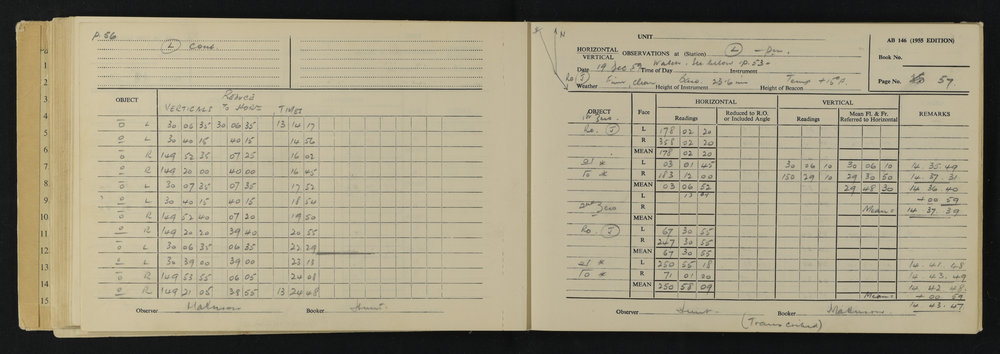 P. 56
(L) cont.
REDUCE
OBJECT VERTICALS TO HORZ TIMES
4. O L 30 06 35 30 06 35 13 14 17
5. O L 30 40 15 40 15 14 56
6. O R 149 52 35 07 25 16 02
7. O R 149 20 00 40 00 16 45
8. O L 30 07 35 07 35 17 52
9. O L 30 40 15 40 15 18 54
10. O R 149 52 40 07 20 19 50
11. O R 149 20 20 39 40 20 55
12. O L 30 06 35 06 35 22 29
13. O L 30 39 00 39 00 23 13
14. O R 149 53 55 06 05 24 08
15. O R 149 21 05 38 55 13 24 48
Observer Booker Hunt.
N
UNIT
AB 146 (1955 EDITION)
HORIZONTAL
VERTICAL
OBSERVATIONS at (Station) (L)
Book No.
Date 19 Dec 59 Time of Day See below p. 53 Instrument
Page No. 57
RO (J) Weather Fine, clear Height of Instrument 23.6 Height of Beacon Temp +15°F.
OBJECT Face HORIZONTAL VERTICAL REMARKS
Readings Reduced to R.O. or Included Angle Readings Mean Fl. & Fr. Referred to Horizontal
1st Zero
RO. (J) L 178 02 20
R 358 02 20
MEAN 178 02 20
* L 03 01 45 30 06 10 30 06 10 14 35 49
To * R 183 12 00 150 29 10 29 30 50 14 37 31
MEAN 03 06 52 29 48 30 14 36 40
L +00 59
2nd Zero R Mean = 14 37 39
MEAN
RO. (J) L 67 30 55
R 247 30 55
MEAN 67 30 55
* L 250 55 18 14 41 48
To * R 71 01 20 14 43 49
MEAN 250 58 09 14 42 48
Mean = +00 59
14 43 47
Observer Hunt Booker
(Transcribed)